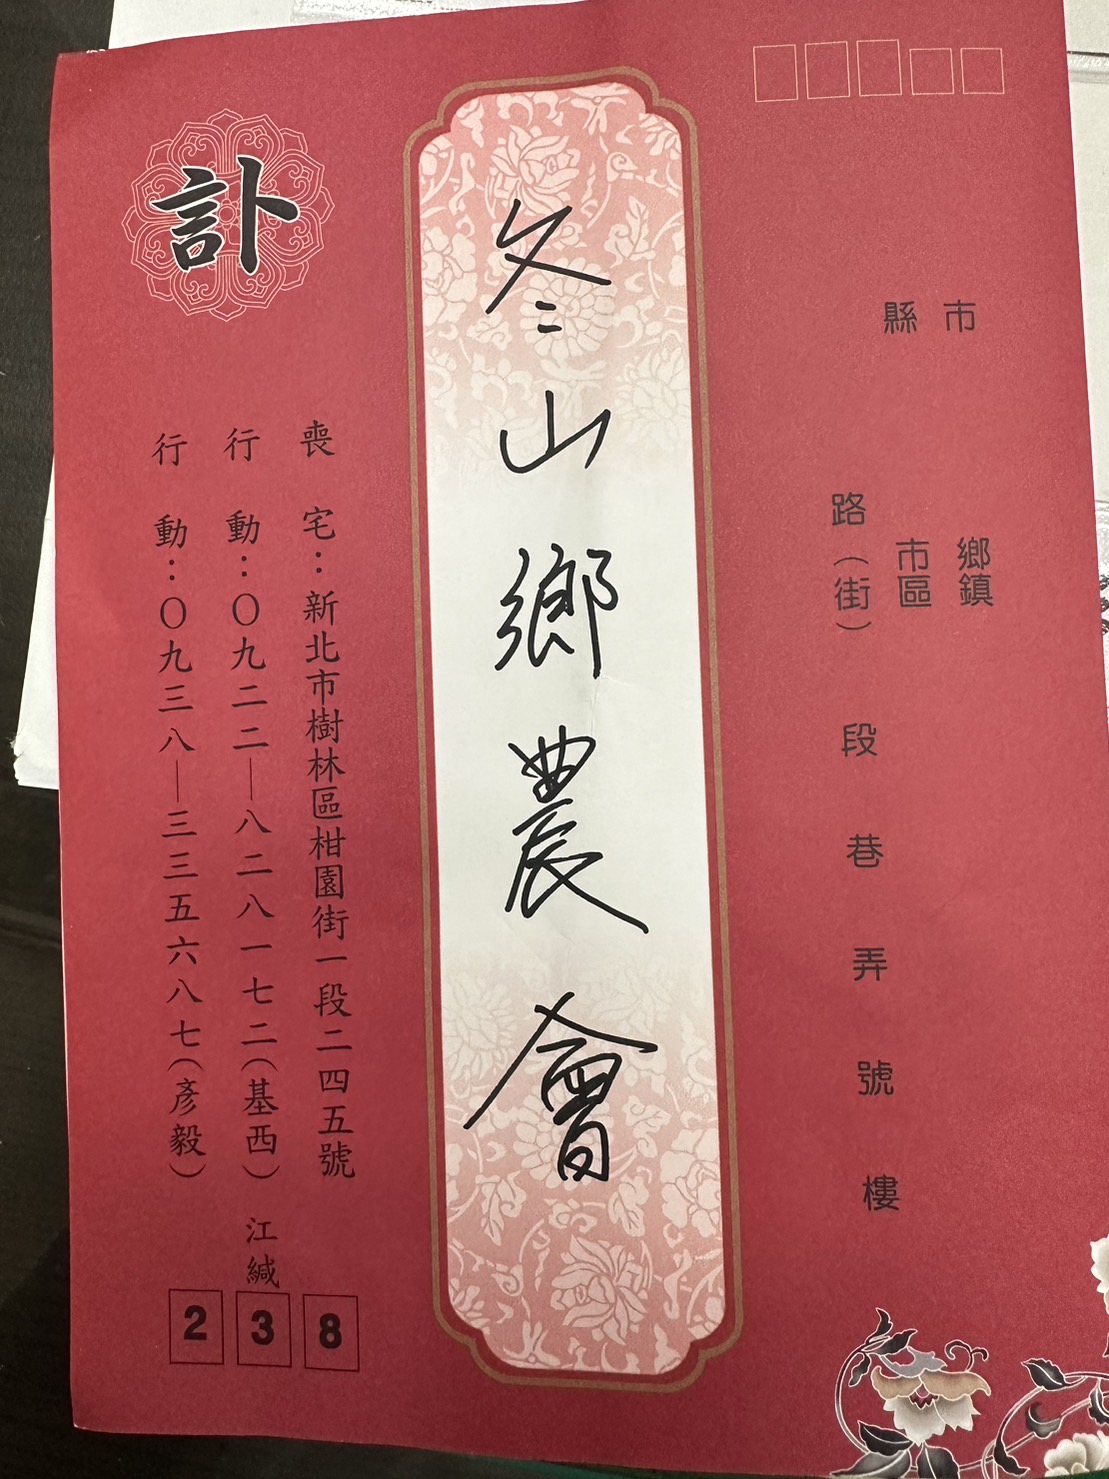 縣市
鄉鎮
市區
路（街）段巷弄號樓
冬山鄉農會
訃
喪宅：新北市樹林區柑園街一段二四五號
行動：〇九二二—八二八一七二（基西）江緘
行動：〇九三八—三三五六八七（彥毅）
238